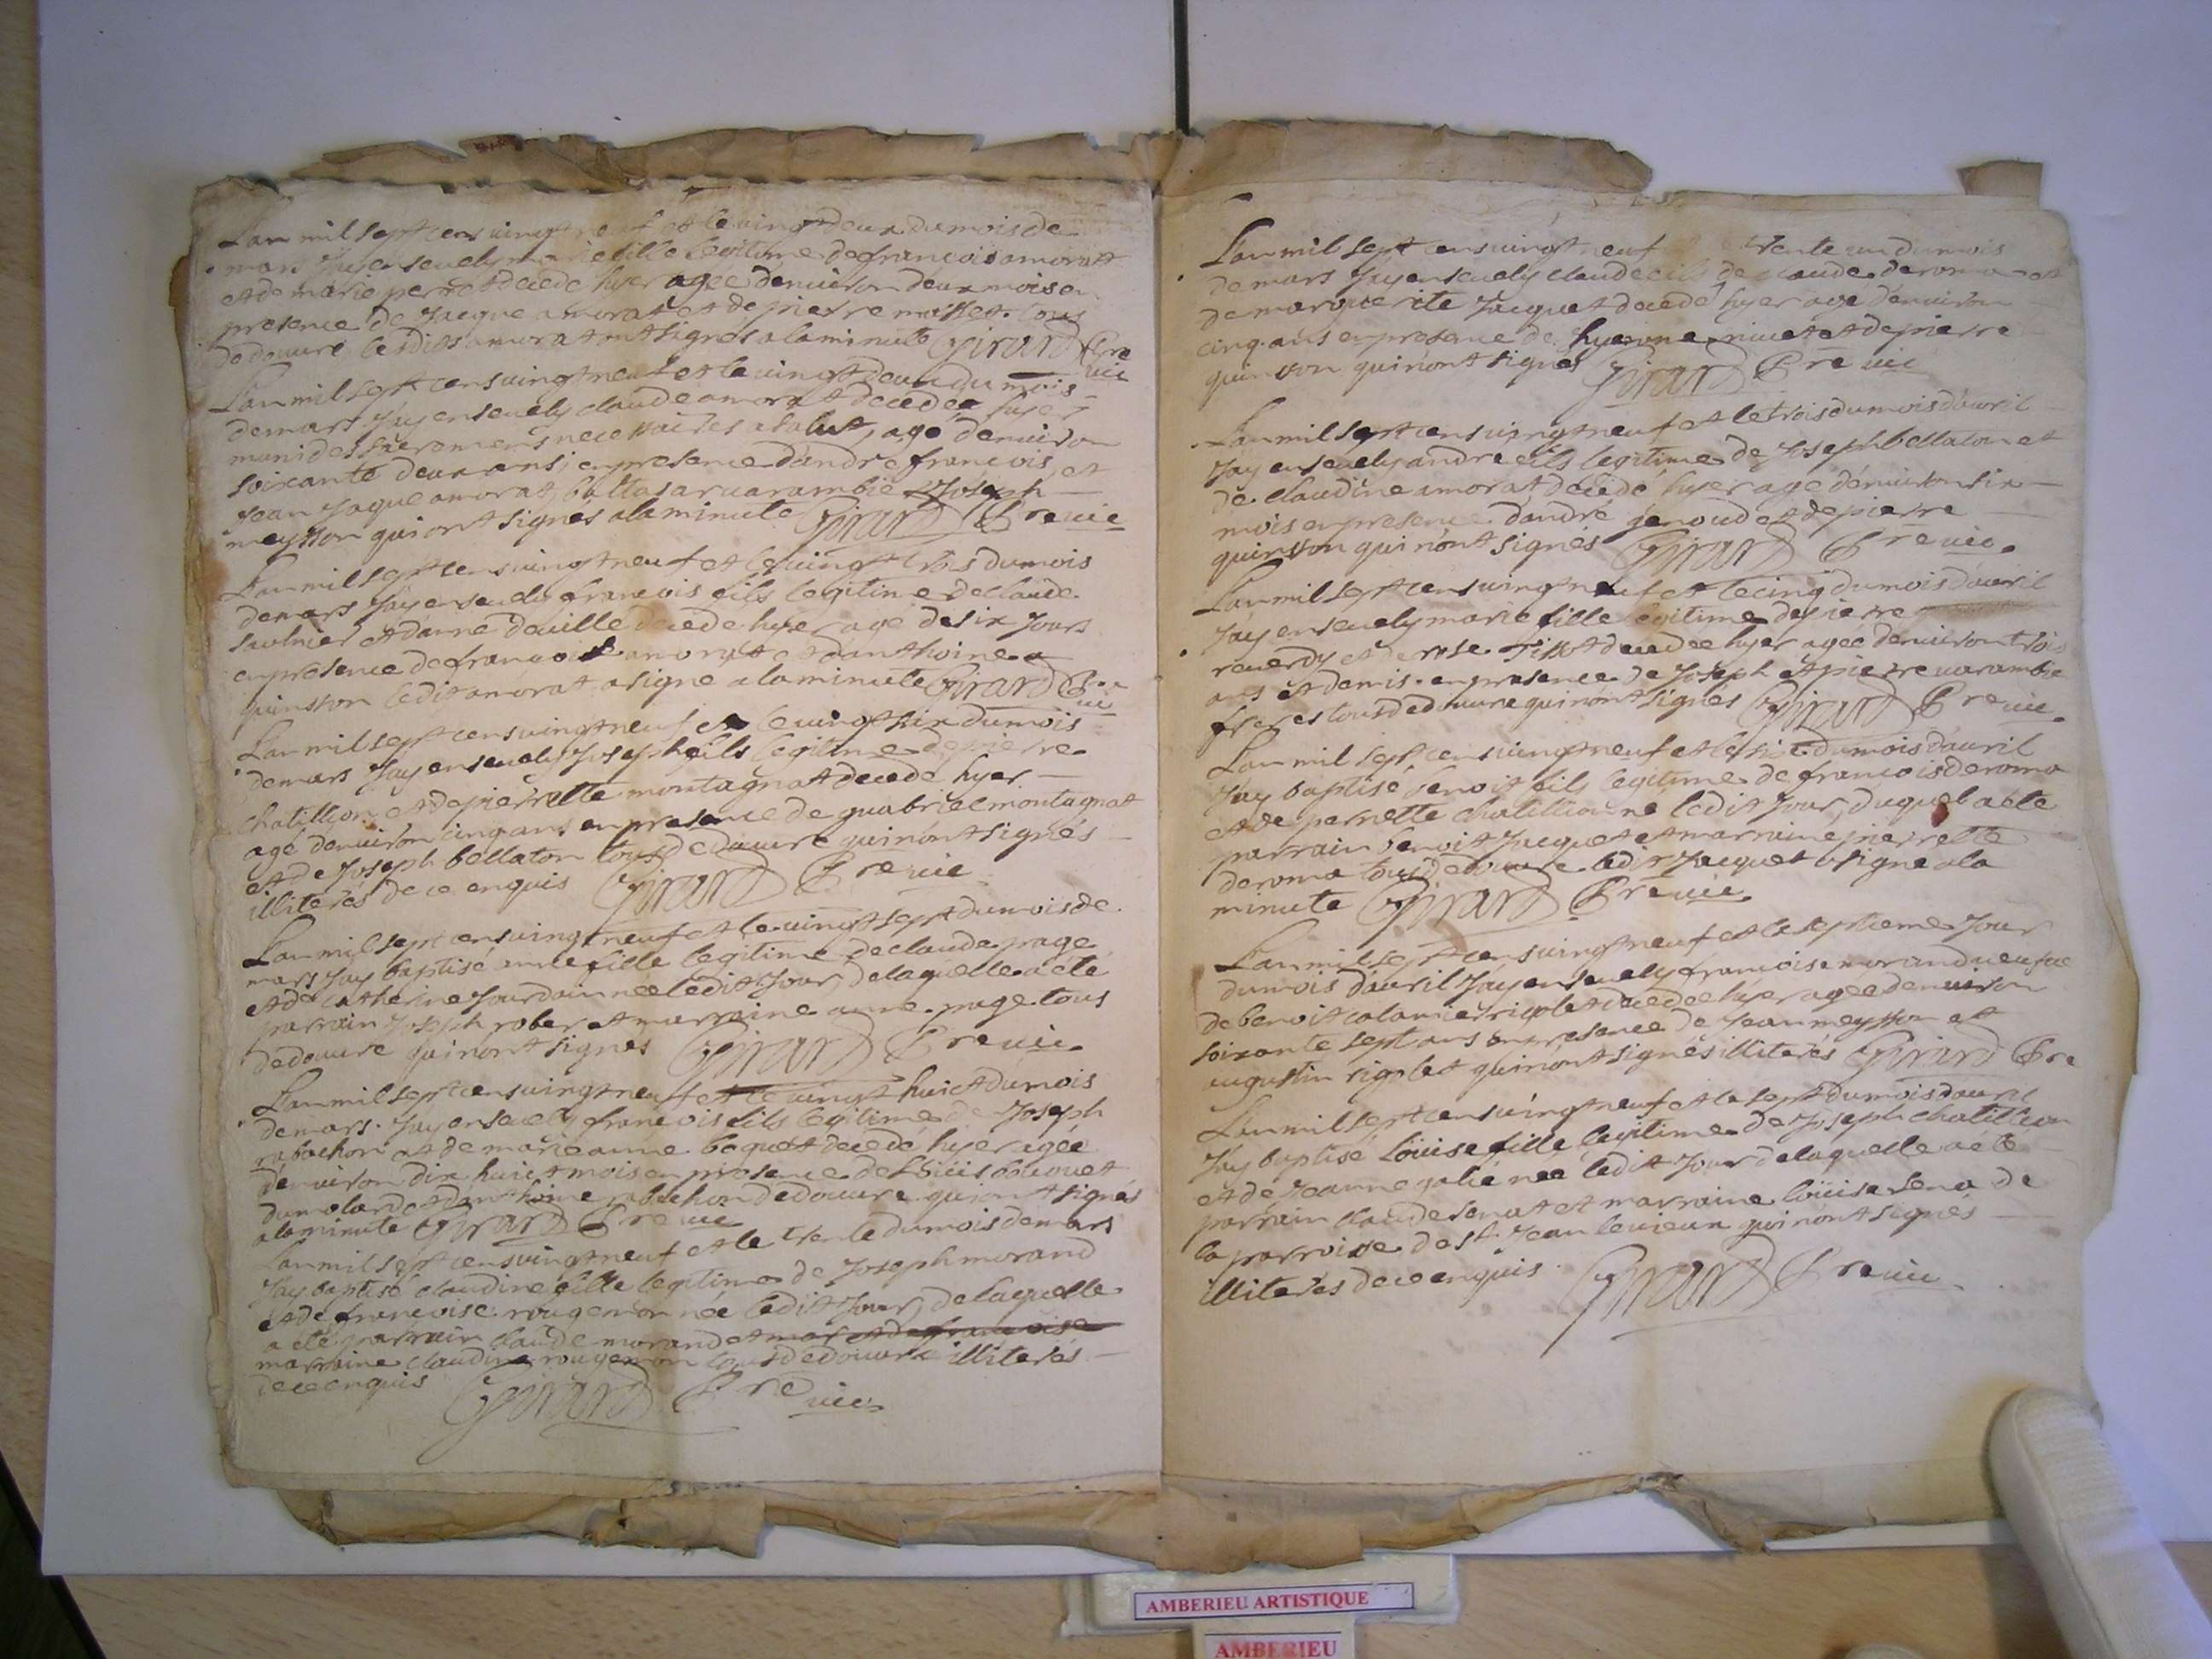 Lan mil sept cens vingt neuf et le vingt deux du mois de
mars Jay ensevely marie fille legitime de françois amorat
et de marie perret decede hyer agee denviron deux mois en
presence de Jacque amorat et de pierre maisset tous
de douvre lesdits amorat ont signes a la minute Girard Pre
vic
Lan mil sept cens vingt neuf et le vingt deux du mois
de mars Jay ensevely claude amorat decedé hyer
muni des sacremens necessaires a salut, agé denviron
soixante deux ans, en presence dandré françois, et
Jean Jaque amorat, baltasar varambie et Joseph
meysson qui ont signes a la minute Girard Pre vic
Lan mil sept cens vingt neuf et le vingt trois du mois
de mars Jay ensevely françois fils legitime de claude
saulnier et danne deville decede hyer agé de six Jours
en presence de françois amorat et danthoine
quinson ledit amorat a signe a la minute Girard Pre
vic
Lan mil sept cens vingt neuf et le vingt six du mois
de mars Jay ensevely Joseph fils legitime de pierre
chatillion et de pierrette montagnat decede hyer
agé denviron cinq ans en presence de guabriel montagnat
et de Joseph bellaton tous de douvre qui nont signés
illiterés de ce enquis Girard Pre vic
Lan mil sept cens vingt neuf et le vingt sept du mois de
mars Jay baptisé anne fille legitime de claude page
et de catherine Jourdain née ledit Jour, de laquelle a été
parrain Joseph rober et marraine anne page tous
de douvre qui nont signés Girard Pre vic
Lan mil sept cens vingt neuf et le vingt huict du mois
de mars Jay ensevely françois fils legitime de Joseph
rabachon et de marie anne boquet decede hyer agée
denviron dix huict mois en presence de Loüis bouvet
dumolard et danthoine rabachon de douvre qui ont signés
a la minute Girard Pre vic
Lan mil sept cens vingt neuf et le trente du mois de mars
Jay baptisé claudine fille legitime de Joseph morand
et de françoise rougemon née ledit Jour, de laquelle
a été parrain claude morand et mar et de françoise
marraine claudine rougemon tous de douvre illiterés
de ce enquis Girard Pre vic
Lan mil sept cens vingt neuf trente un du mois
de mars Jay ensevely claude fils de claude deroma et
de marguerite Jacquet decedé hyer agé denviron
cinq ans en presence de hyerome nivet et de pierre
quinson qui nont signés Girard Pre vic
Lan mil sept cens vingt neuf et le trois du mois davril
Jay ensevely andre fils legitime de Joseph bellaton et
de claudine amorat decedé hyer agé denviron six
mois en presence dandré genoud et de pierre
quinson qui nont signés Girard Pre vic
Lan mil sept cens vingt neuf et le cinq du mois davril
Jay ensevely marie fille legitime de pierre
reverdy et de rose Tissot decedee hyer agee denviron trois
ans et demis en presence de Joseph et pierre varambie
freres tous de douvre qui nont signés Girard Pre vic
Lan mil sept cens vingt neuf et le six du mois davril
Jay baptisé benoit fils legitime de françois deroma
et de pernette chatillion né ledit Jour, duquel a été
parrain benoit Jacquet et marraine pierrette
deroma tous de douvre ledit Jacquet a signe a la
minute Girard Pre vic
Lan mil sept cens vingt neuf et le septieme Jour
du mois davril Jay ensevely françoise morand veufve
de benoit colomier rigolet decedee hyer agee denviron
soixante sept ans en presence de Jean meysson et
augustin rigolet qui nont signés illiterés Girard Pre
Lan mil sept cens vingt neuf et le sept du mois davril
Jay baptisé Loüise fille legitime de Joseph chatillion
et de Jeanne galié née ledit Jour de laquelle a été
parrain claude senat et marraine loüise sena de
la parroisse de st Jean le vieux qui nont signés
illiterés de ce enquis Girard Pre vic
AMBERIEU ARTISTIQUE
AMBERIEU